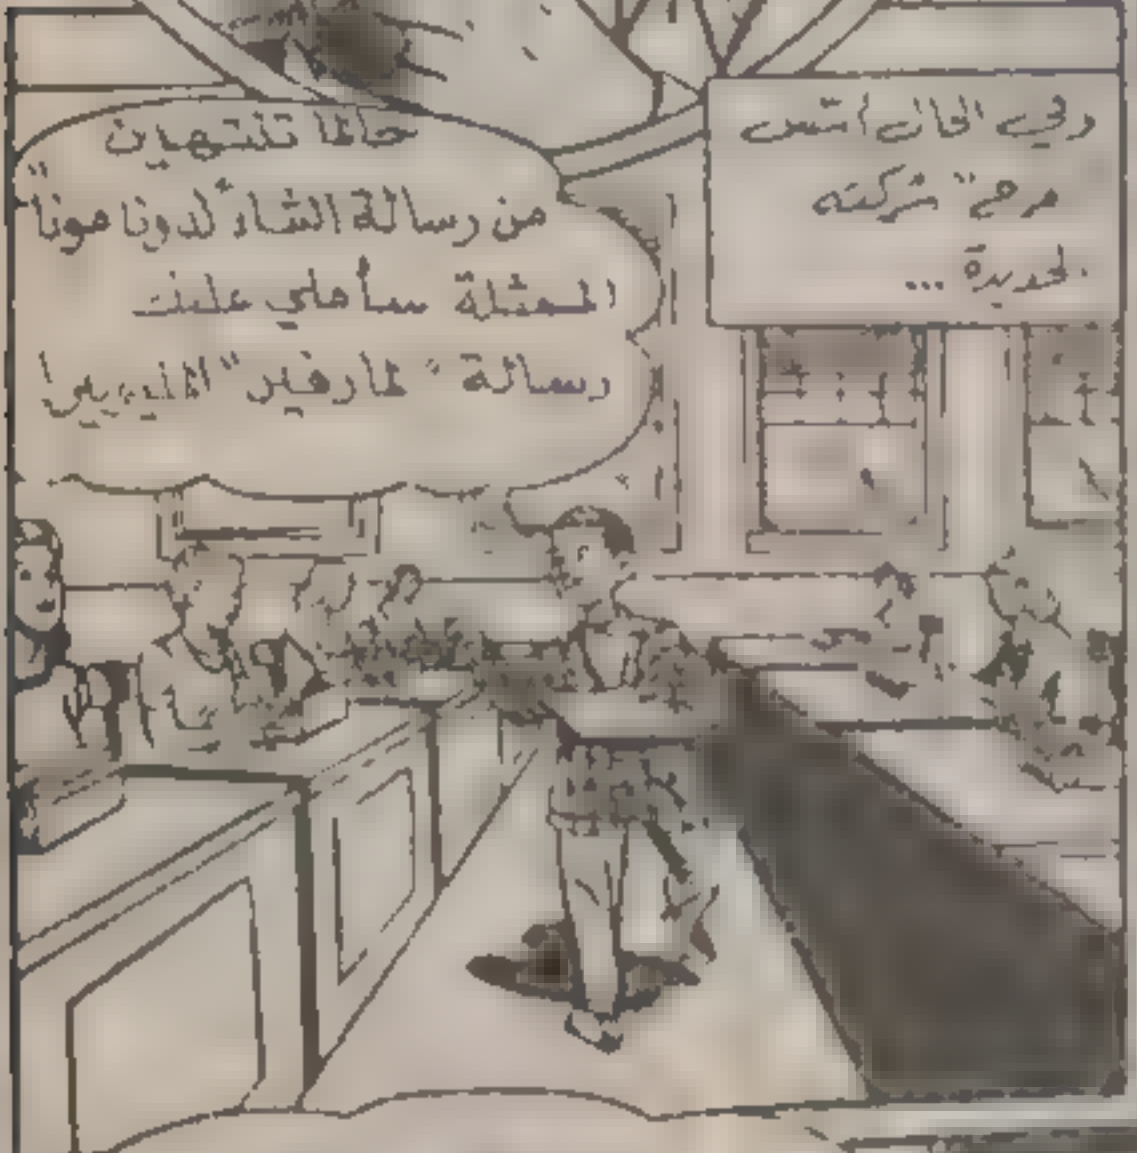 وفي الحال أسس
مرح" شركته
الجديدة ...
حالما تنتهين
من رسالة الشاء لدونا مونا"
الممثلة سأملي عليك
رسالة "لمارفين"